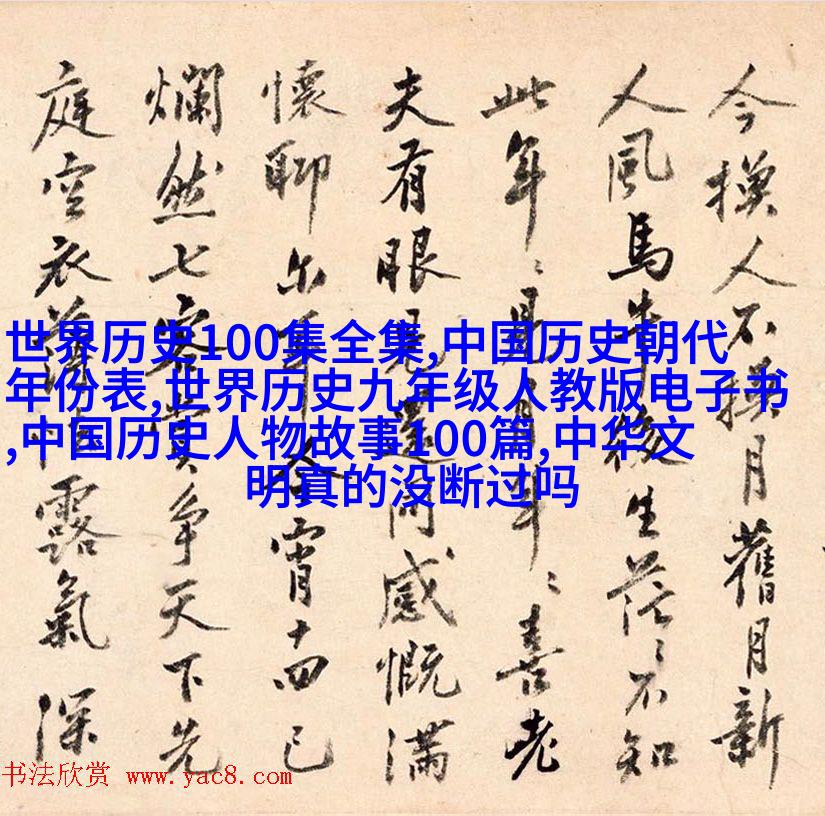 今換人不換月舊月新
人風馬牛後生茫〻不知
此年〻月年〻喜老
夫有眼見還同感慨滿
懷聊尔今宵十四已
爛然七客賞爭天下先
庭空衣薄怯露氣深
世界历史100集全集,中国历史朝代
年份表,世界历史九年级人教版电子书
,中国历史人物故事100篇,中华文
明真的没断过吗
书法欣赏 www.yac8.com